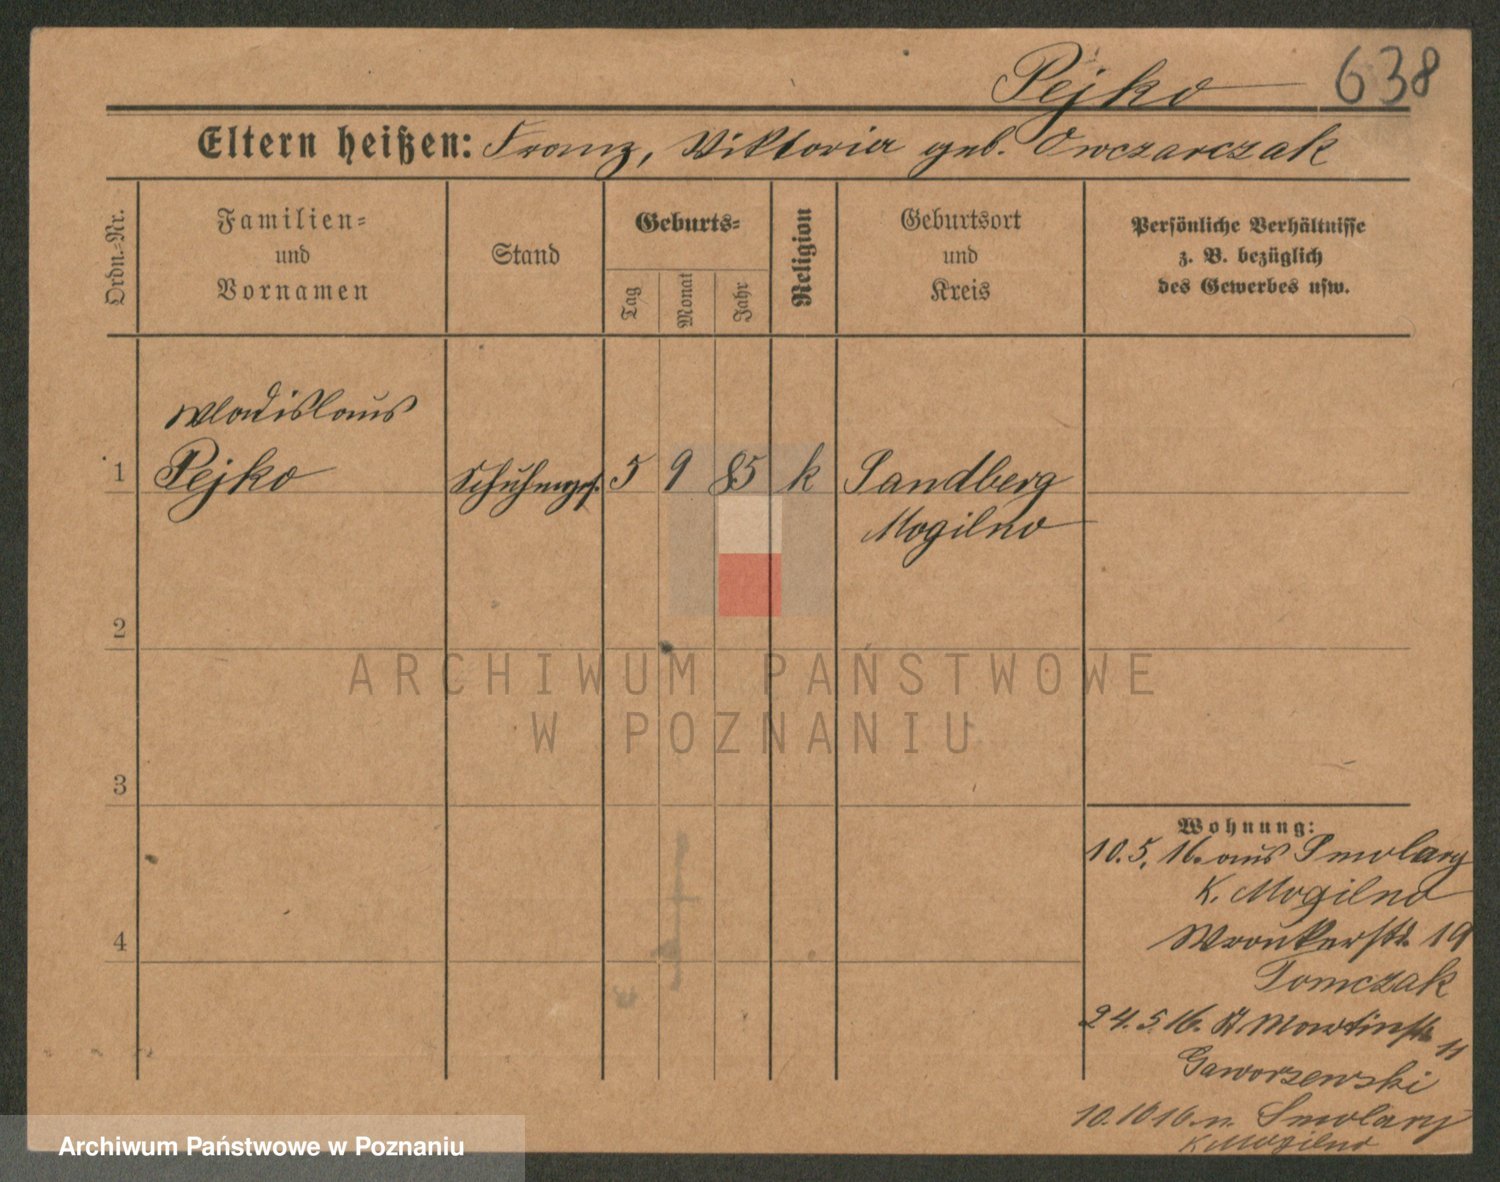 Pejko 638
Eltern heißen: Franz, Viktoria geb. Owczarczak
Ordn.-Nr.
Familien-
und
Vornamen
Stand
Geburts-
Tag
Monat
Jahr
Religion
Geburtsort
und
Kreis
Persönliche Verhältnisse
z. B. bezüglich
des Gewerbes usw.
Wladislaus
1 Pejko Schuhmgs. 5 9 85 k Sandberg
Mogilno
2
3
4
Wohnung:
10.5.16. aus Smolary
K. Mogilno
Wronkerstr. 19
Tomczak
24.5.16. St Martinstr.
11
Gaworzewski
10.10 16. n. Smolary
K Mogilno
ARCHIWUM PAŃSTWOWE
W POZNANIU
Archiwum Państwowe w Poznaniu